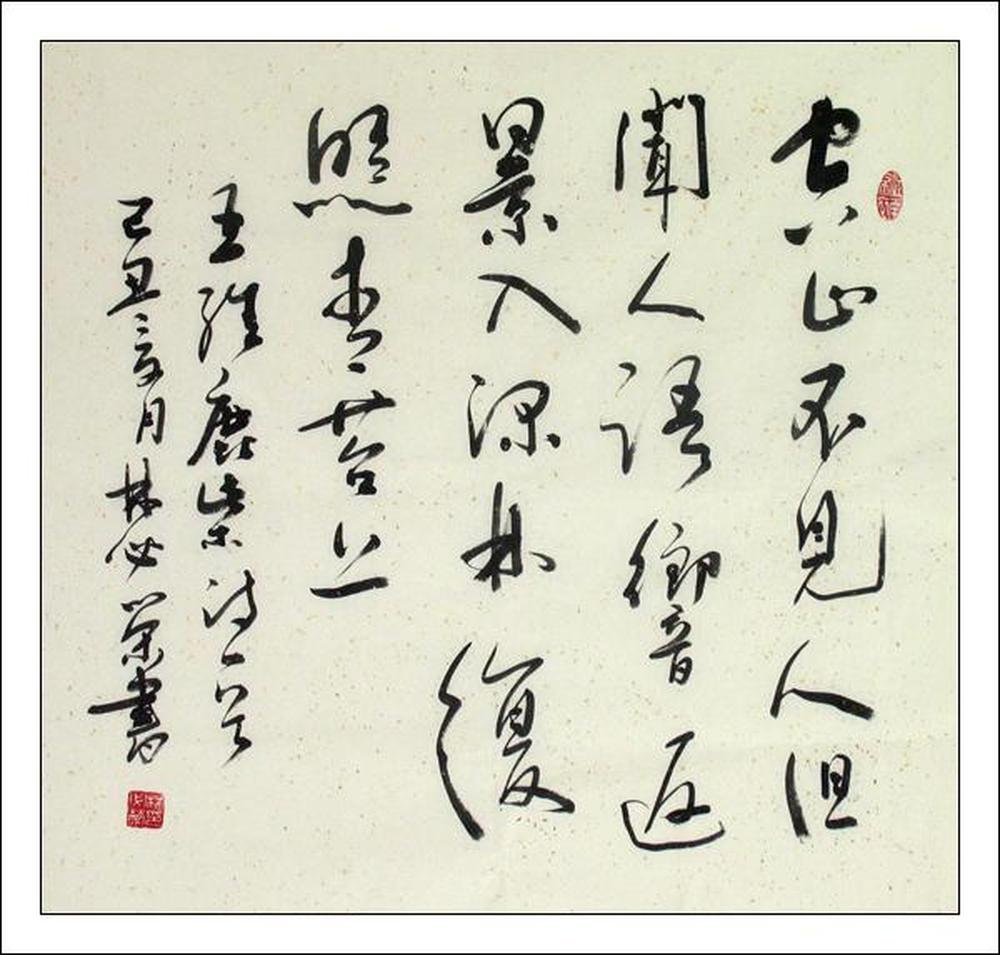 空山不見人但
聞人語響返
景入深林復
照青苔上
王維鹿柴詩一首
己丑夏月林必榮書